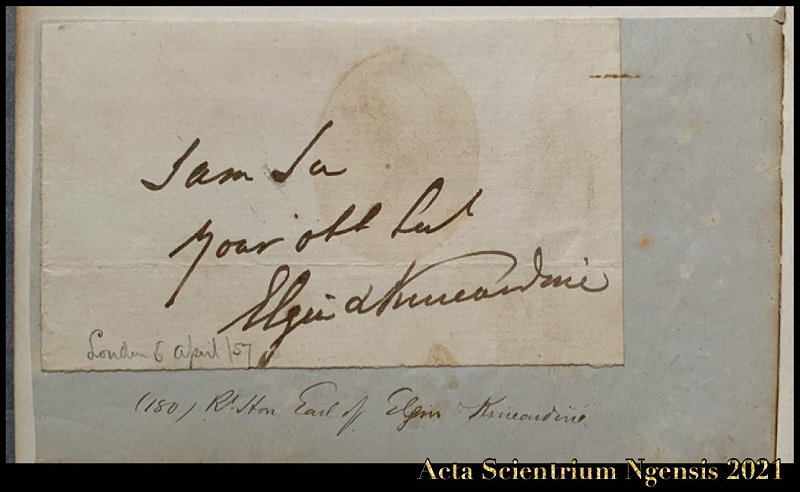 I am Sir
Your obt Sert
Elgin & Kincardine
London 6 April /57
(180) Rt Hon Earl of Elgin Kincardine
Acta Scientrium Ngensis 2021